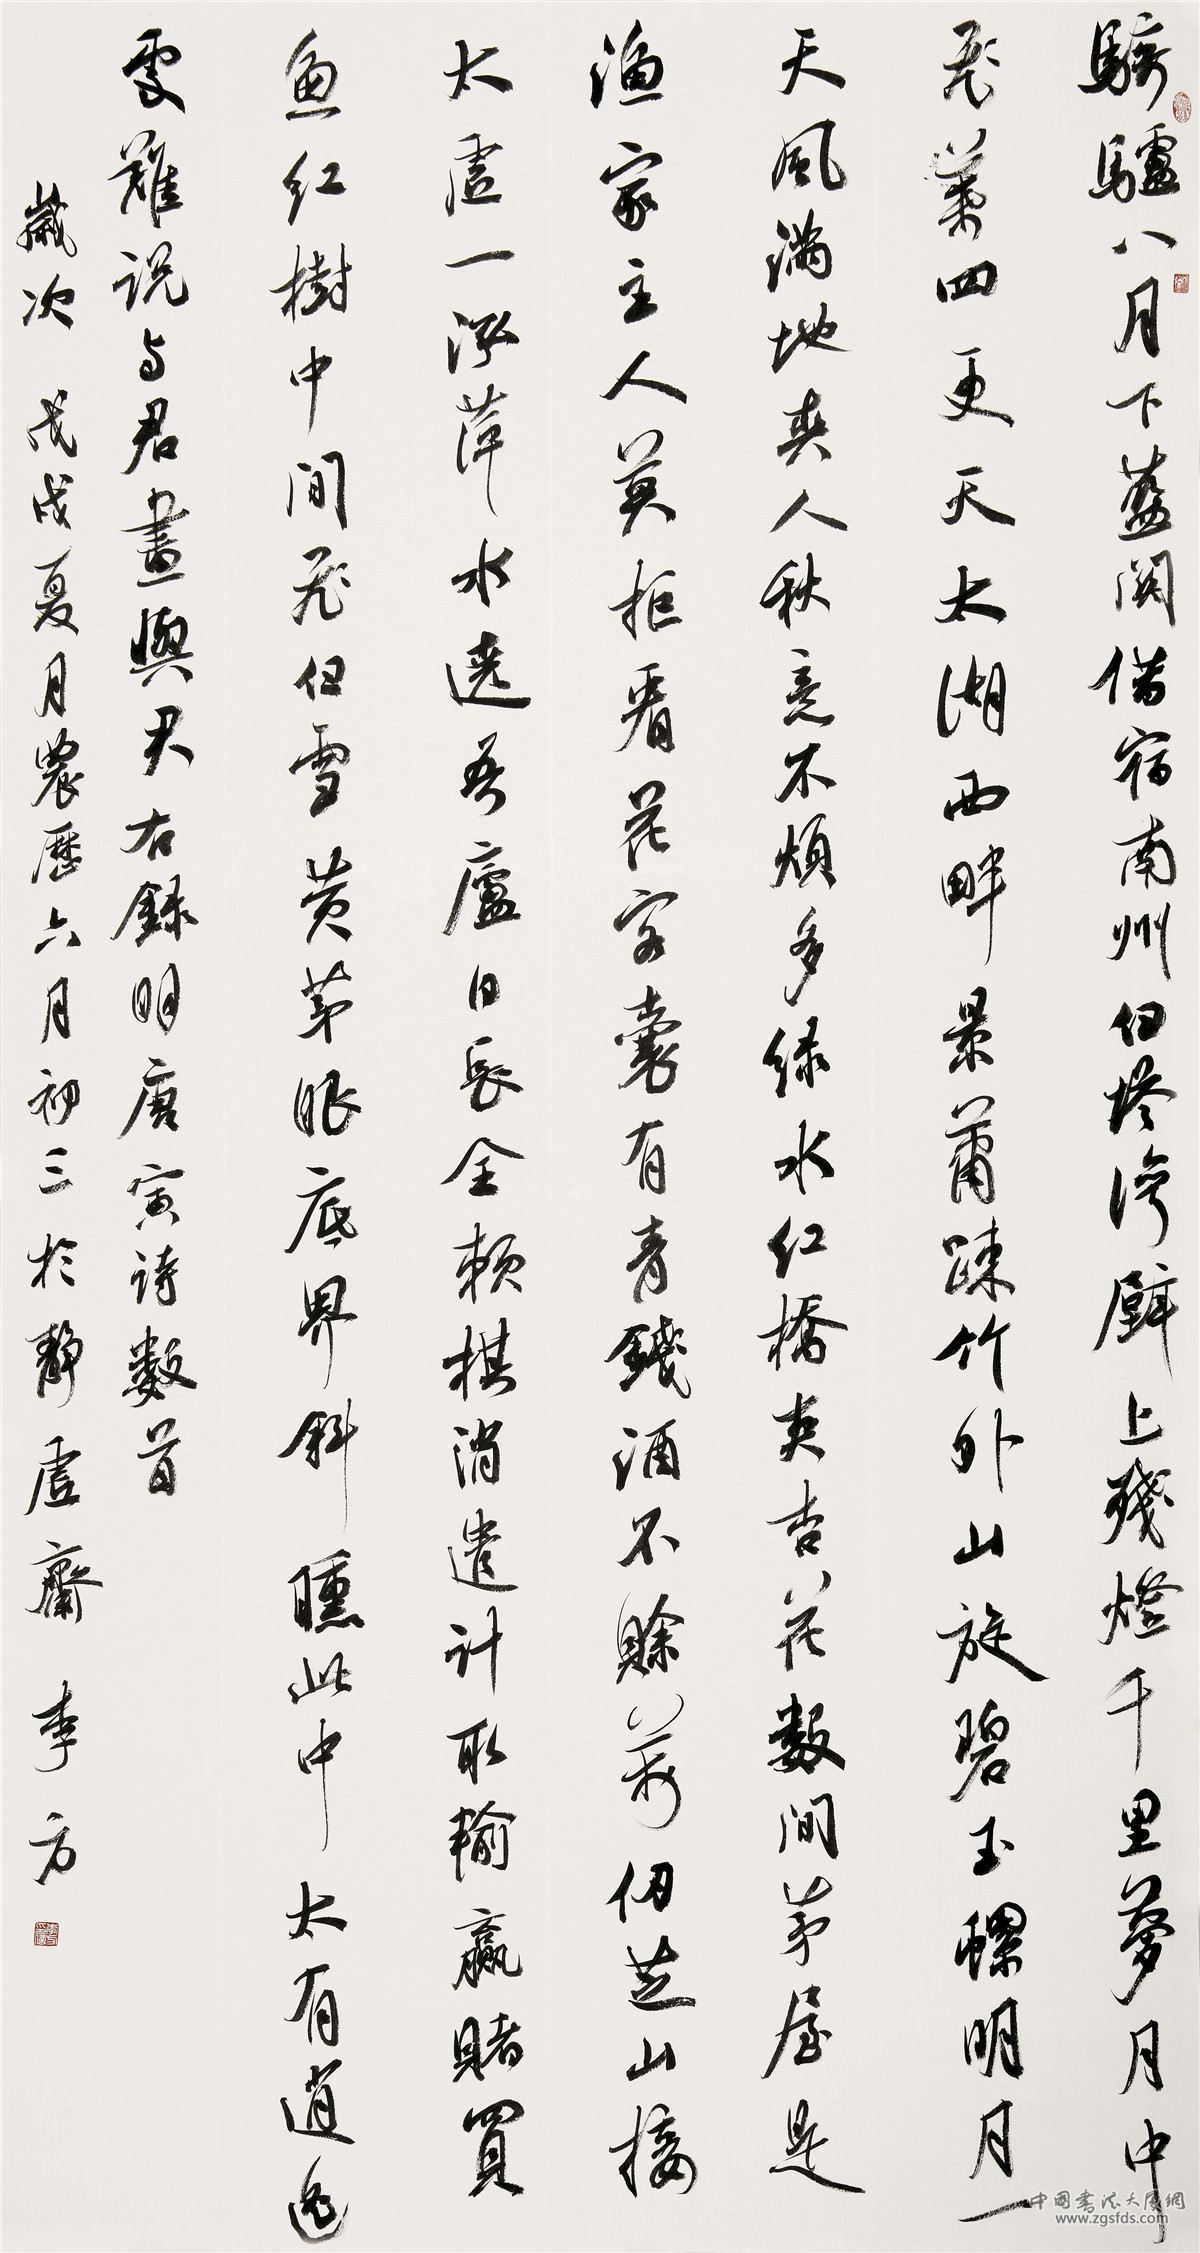 騎驢八月下藍關借宿南州白塔灣壁上殘燈千里夢月中
飛葉四更天太湖西畔景蕭疎竹外山旋碧玉螺明月一
天風滿地爽人秋意不煩多綠水紅橋夹杏花数間茅屋是
漁家主人莫拒看花客囊有青錢酒不賒萬仞芝山接
太虛一泓萍水遶吾廬日長全賴棋消遣計取輸贏賭買
魚紅樹中間飛白雪黃茅眼底界斜曛此中大有逍遙
處難说与君畫與君右錄明唐寅诗数首
歲次戊戌夏月農歷六月初三於靜虛齋李方
中国书法大厦網
www.zgsfds.com